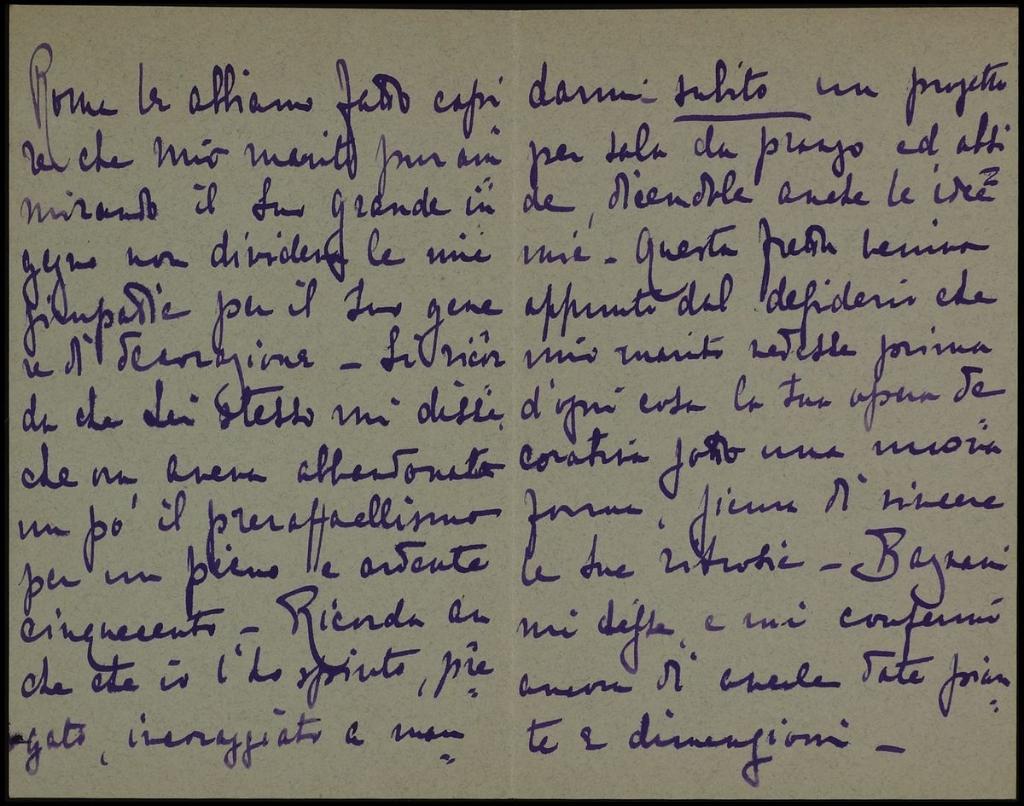 Roma le abbiamo fatto capi
re che mio marito pur am
mirando il Suo grande in
gegno non divideva le mie
simpatie per il Suo gene
re di decorazione – Si ricor
da che Lei stesso mi disse,
che ora aveva abbandonato
un po' il preraffaellismo
per un pieno e ardente
cinquecento – Ricorda an
che che io l'ho spinto, pre
gato, incoraggiato a man
darmi subito un progetto
per sala da pranzo ed absi
de, dicendole anche le idee
mie – Questa fretta veniva
appunto dal desiderio che
mio marito vedesse prima
d'ogni cosa la Sua opera de
corativa sotto una nuova
forma, sicura di vincere
le sue ritrosie – Bagnani
mi disse, e mi confermò
ancora di averle date pian
te e dimensioni –